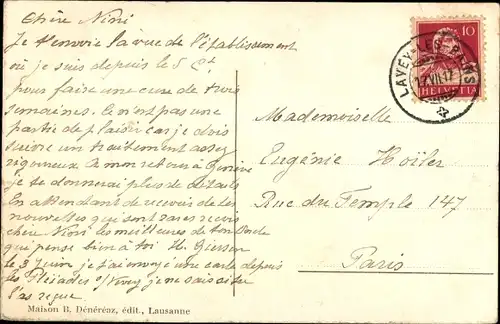 Chère Nini
Je t'envoie la vue de l'établissement
où je suis depuis le 5 ct
pour faire une cure de trois
semaines. Ce n'est pas une
partie de plaisir car je dois
suivre un traitement assez
rigoureux. A mon retour à Genève
je te donnerai plus de détails
En attendant de recevoir de tes
nouvelles qui sont rares reçois
chère Nini les meilleures de ton oncle
qui pense bien à toi H. Giessen
le 3 Juin je t'ai envoyé une carte depuis
les Pléiades s/Vevey je ne sais si tu
l'as reçue
Maison B. Dénéréaz, édit., Lausanne
10
HELVETIA
LAVEY-LES-BAINS
Mademoiselle
Eugénie Hoïler
Rue du Temple 147
Paris